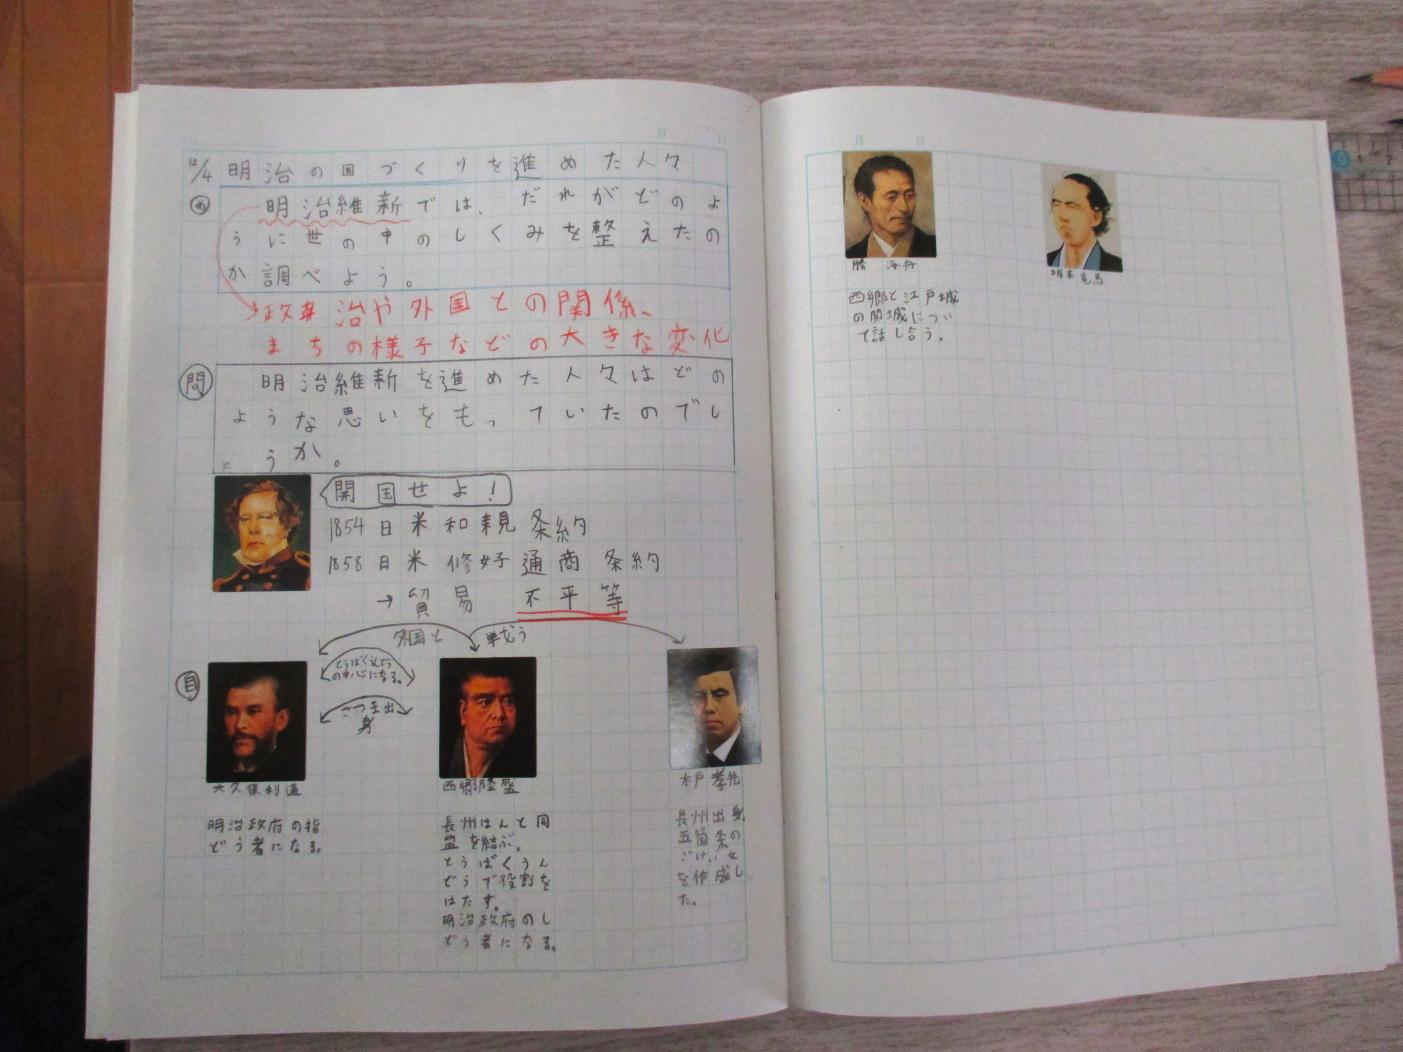 12/4 明治の国づくりを進めた人々
め 明治維新では、だれがどのよ
うに世の中のしくみを整えたの
か調べよう。
政治や外国との関係、
まちの様子などの大きな変化
問 明治維新を進めた人々はどの
ような思いをもっていたのでし
ょうか。
開国せよ！
1854 日米和親条約
1858 日米修好通商条約
→貿易 不平等
外国と 戦う
自
とうばくんどう
の中心になる。
さつま出
身
大久保利通
明治政府の指
どう者になる。
西郷隆盛
長州はんと同
盟を結ぶ。
とうばくうん
どうで役割を
はたす。
明治政府のし
どう者になる。
木戸孝允
長州出身
五箇条の
ごせい文
を作成し
た。
月 日
勝 海舟
西郷と江戸城
の開城につい
て話し合う。
坂本竜馬
0 1 2